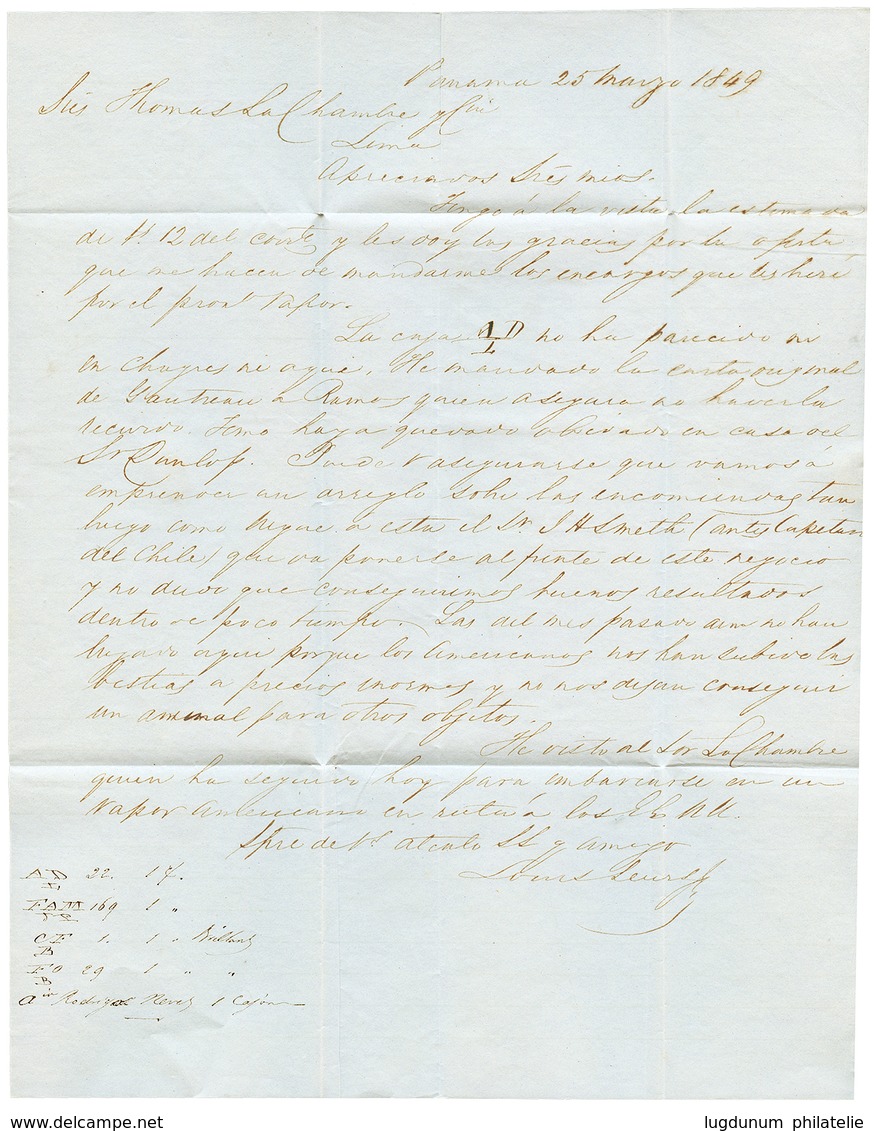 Panama 25 Marzo 1849
Srés Thomas La Chambre y Cia
Lima
Apreciados Srēs mios.
Tengo á la vista la estimada
de Vs 12 del corrte y les doy las gracias por la oferta
que me hacen de mandarme los encargos que les hice
por el proxº vapor.
La caja AD no ha parecido ni
L
en Chagres ni aqui. He mandado la carta original
de Gautreau a Ramos quien asegura no haverla
recivido. Temo haya quedado olvidado en casa del
Sr Dunlop. Puede V asegurarse que vamos á
emprender un arreglo sobe las encomiendas tan
luego como llegue a esta el Sr. J H Smith (antes Capitan
del Chile) que va ponerse al frente de este negocio
y no dudo que conseguiremos buenos resultados
dentro de poco tiempo. Las del mes pasado aun no han
llegado aqui porque los Americanos nos han subido las
bestias a precios inormes y no nos dejan conseguir
un animal para otros objetos.
He visto al Sor La Chambre
quien ha seguido hoy para embarcarse en un
vapor Americano en ruta á los EE UU.
Spre de Vs atento SS y amigo
Louis
AD 22. 1
L
FAM 169 1 "
CF 1. 1 " Brillant
B
FO 29 1 " "
B
1 Cajon
www.delcampe.net
lugdunum philatelie